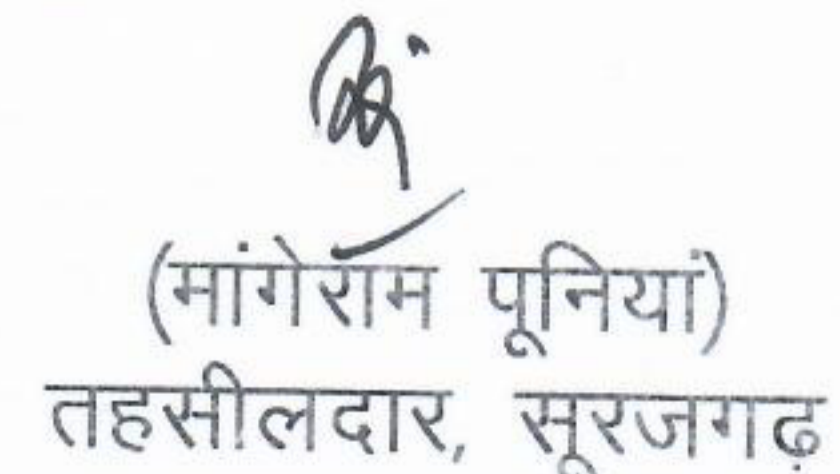 (मांगेराम पूनियां)
तहसीलदार, सूरजगढ़